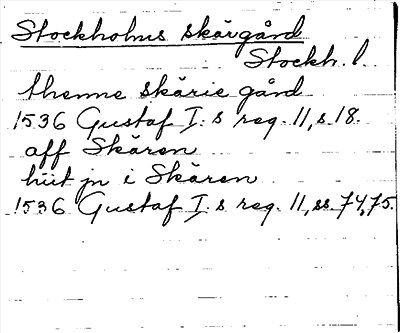 Stockholms skärgård
Stockh. l.
thenne skärie gård
1536 Gustaf I:s reg. 11, s. 18.
aff Skären
hiit jn i Skären
1536 Gustaf I:s reg. 11, ss. 74, 75.